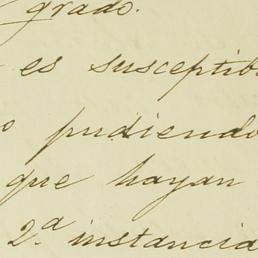 grado.
es susceptib
pudiendo
que hayan
2.ª instancia